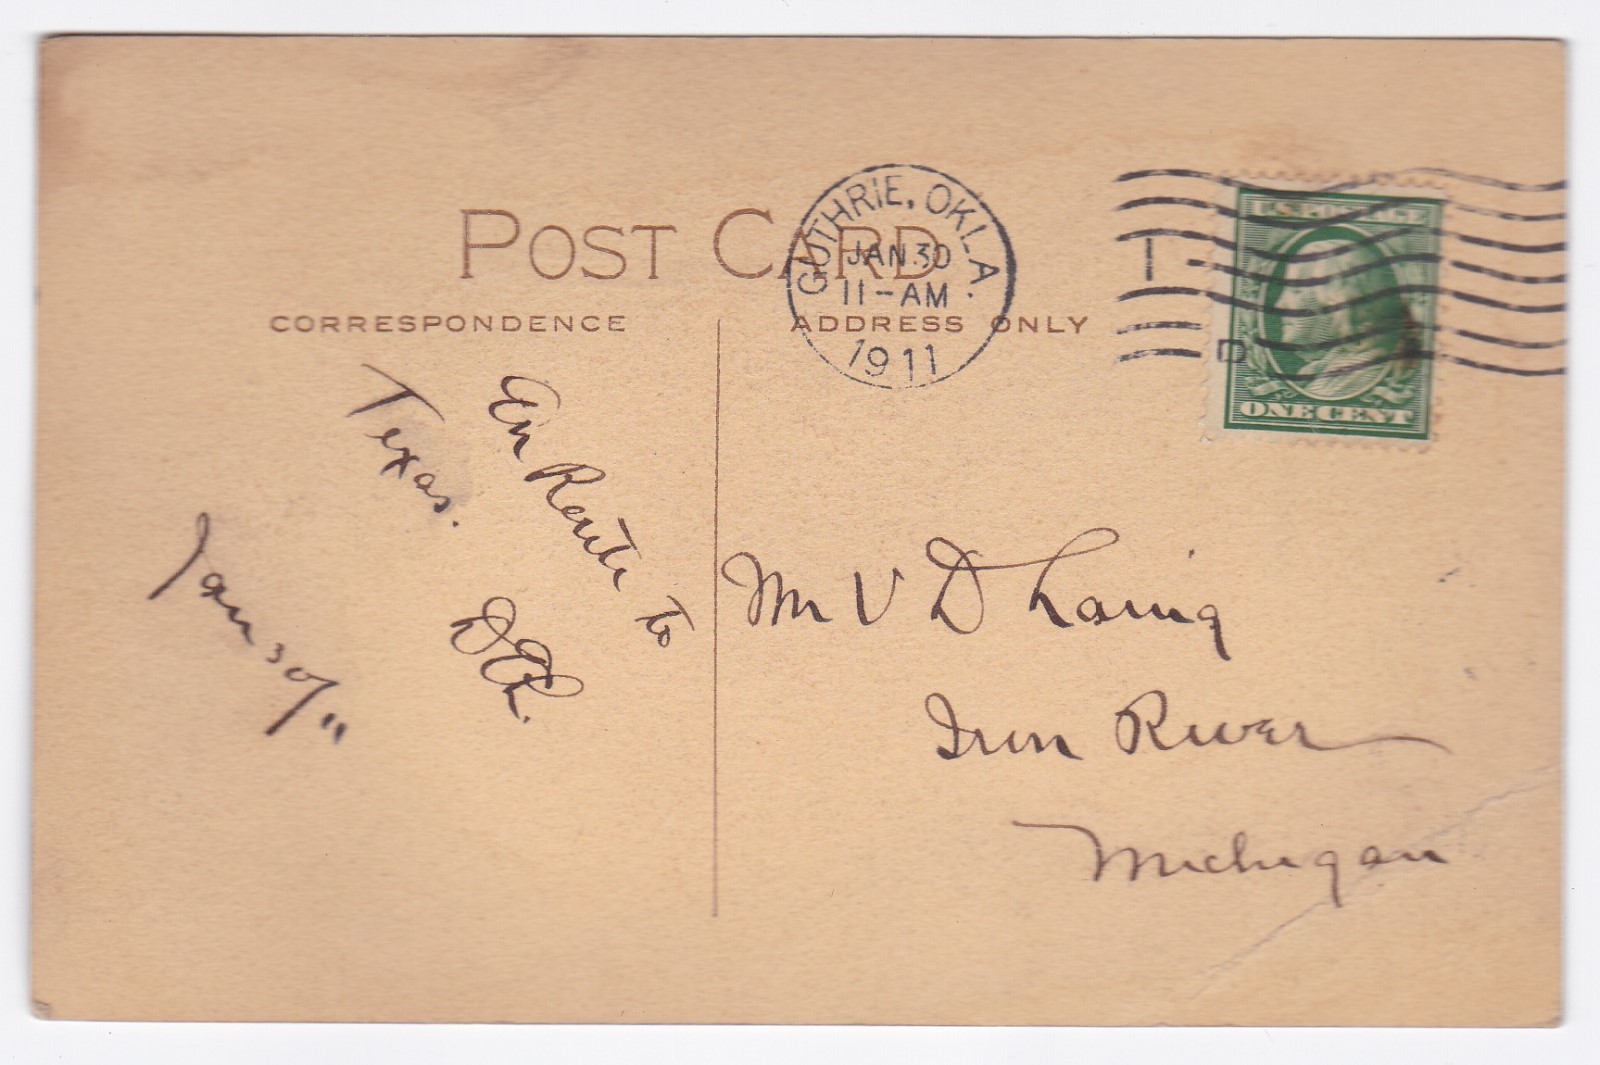 POST CARD
CORRESPONDENCE
ADDRESS ONLY
GUTHRIE, OKLA.
JAN 30
11-AM
1911
U.S. POSTAGE
ONE CENT
1
D
En Route to
Texas.
Jan 30/11
Mr V D Laing
Iron River
Michigan